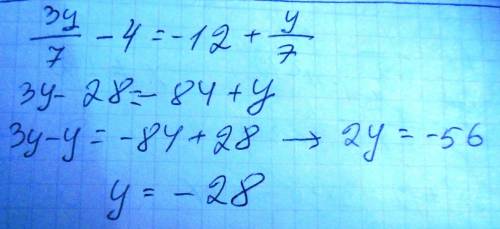 3y/7 - 4 = -12 + y/7
3y - 28 = - 84 + y
3y - y = -84 + 28 → 2y = -56
y = - 28